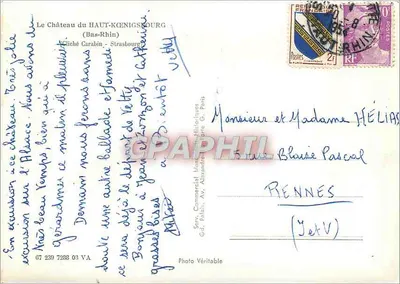 Le Château du HAUT-KŒNIGSBOURG
(Bas-Rhin)
Cliché Carabin - Strasbourg
En excursion à ce château. Très jolie
excursion sur l'Alsace. Nous avons du
très beau temps bien qu'à
Gérardmer ce matin il pleuvait.
Demain nous ferons sans
doute une autre ballade et samedi
ce sera déjà le départ de Vetty
Bonjour à Jean et et Catherine.
grosses bises à Bientôt
Vetty
Photo Véritable
67 239 7288 03 VA
Monsieur et Madame HÉLIAS
5 rue Blaise Pascal
RENNES
(I et V)
PARIS
2F
RF
HAUT-RHIN
DELCAMPE